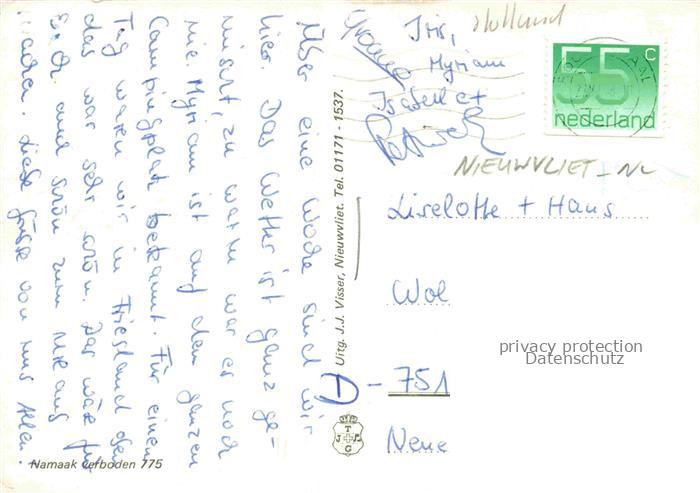 Über eine Woche sind wir
hier. Das Wetter ist ganz ge-
mischt, zu warm war es noch
nie. Myriam ist auf dem ganzen
Campingplatz bekannt. Für einen
Tag waren wir in Friesland oben
das war sehr schön. Das wäre für
Euch auch schön zum
machen. Liebe Grüsse von uns allen.
Iris,
Myriam
Isabell et
Patrick
Holland
55 c
nederland
NIEUWVLIET - NL
Uitg. J.J. Visser, Nieuwvliet. Tel. 01171 - 1537.
Liselotte + Hans
Wol
D - 751
Neue
privacy protection
Datenschutz
T
J G
Namaak eefboden 775